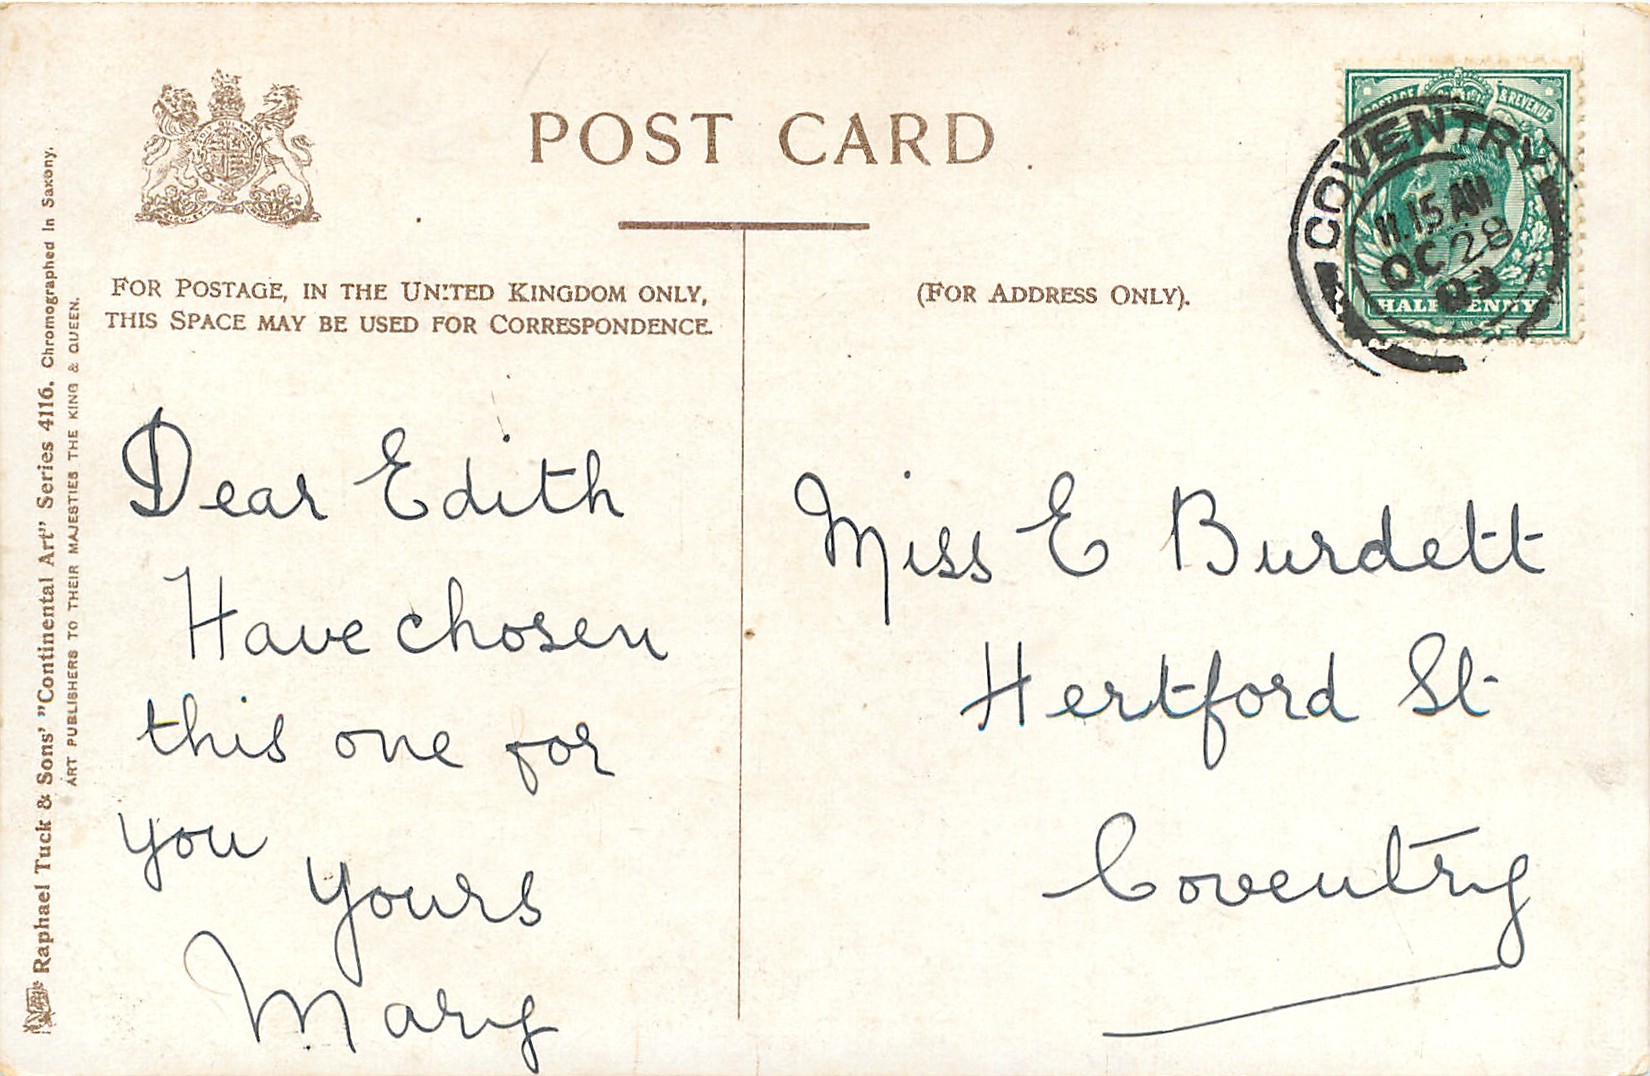 POST CARD
FOR POSTAGE, IN THE UNITED KINGDOM ONLY,
THIS SPACE MAY BE USED FOR CORRESPONDENCE.
(FOR ADDRESS ONLY).
POSTAGE & REVENUE
HALFPENNY
COVENTRY
11.15 AM
OC 28
03
Dear Edith
Have chosen
this one for
you
Yours
Mary
Miss E Burdett
Hertford St
Coventry
Raphael Tuck & Sons' "Continental Art" Series 4116. Chromographed in Saxony.
ART PUBLISHERS TO THEIR MAJESTIES THE KING & QUEEN.